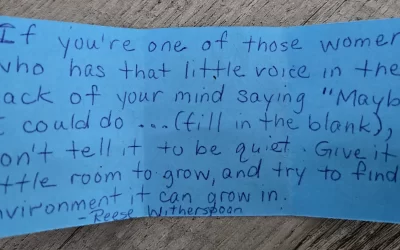 If you're one of those women
who has that little voice in the
back of your mind saying "Maybe
I could do ... (fill in the blank),
don't tell it to be quiet. Give it
little room to grow, and try to find
environment it can grow in.
-Reese Witherspoon